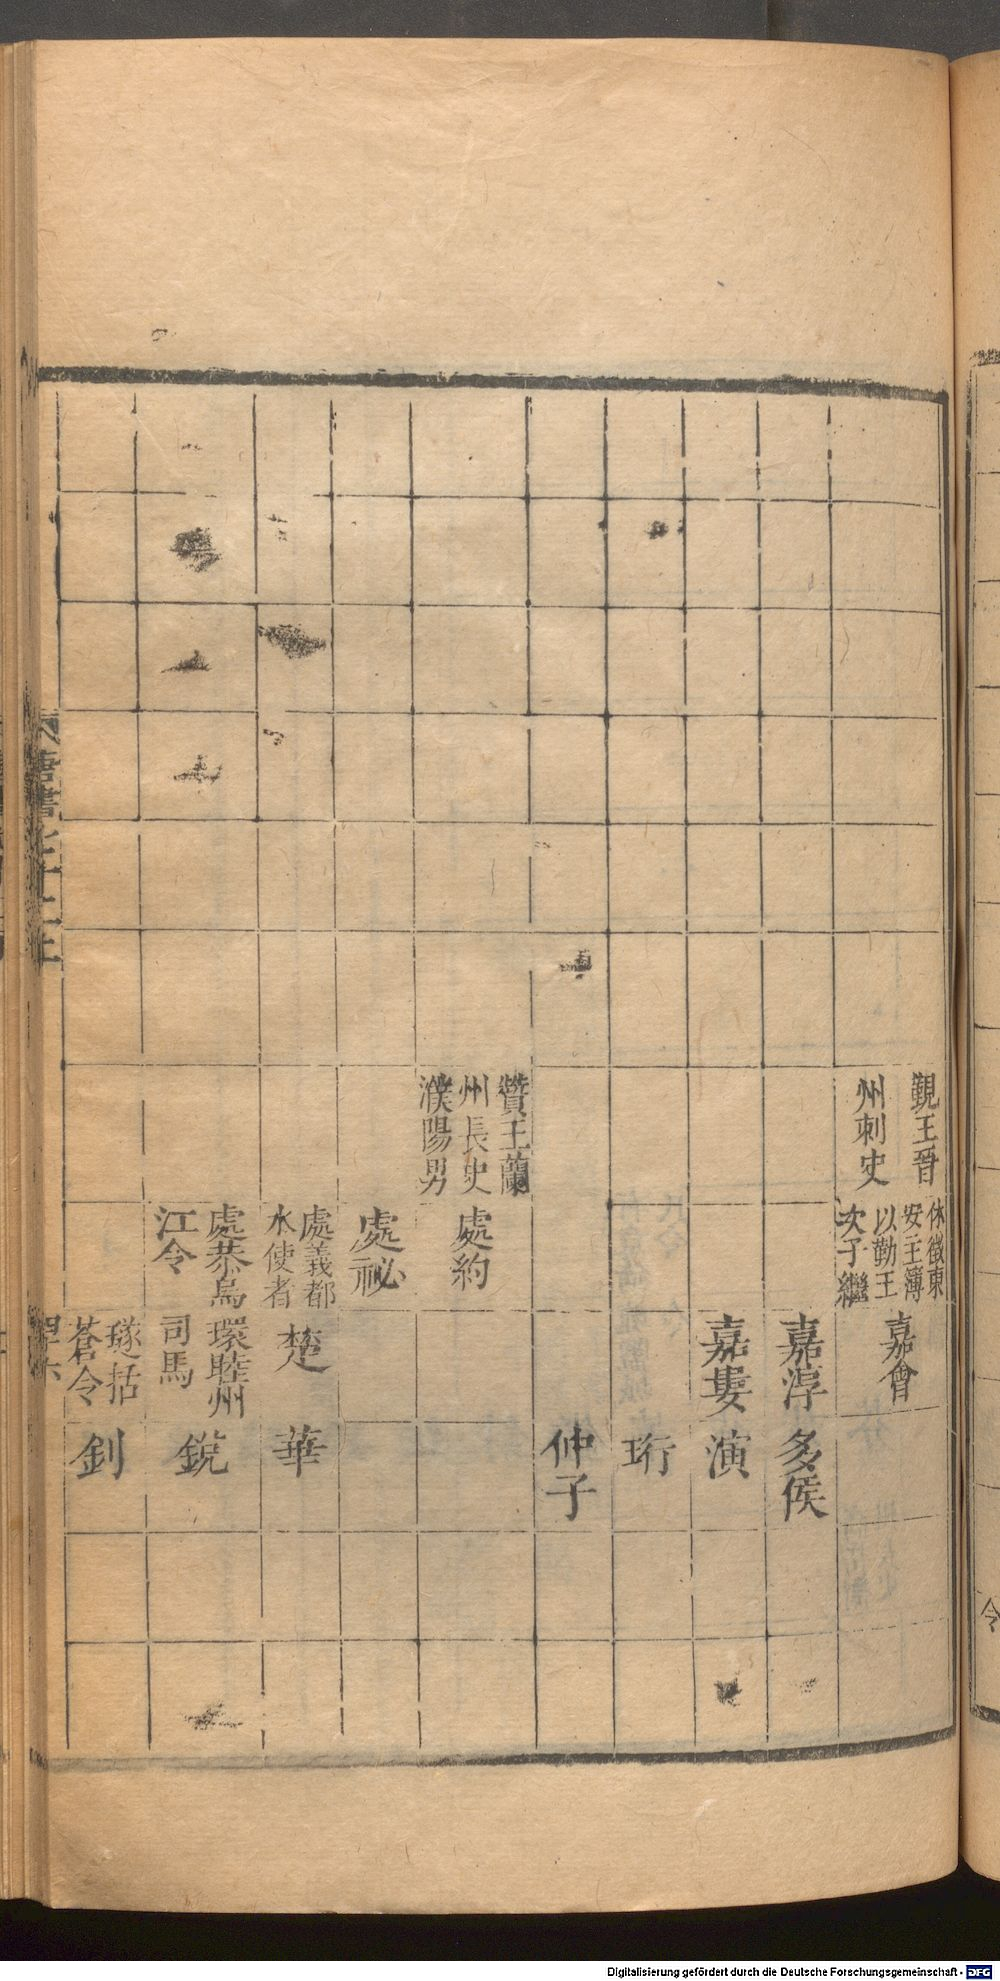 觀王晉
州刺史
休徵東
安主簿
以勤王
次子繼
嘉會
嘉淳
多侯
嘉婁
演
珩
仲子
贊王蘭
州長史
濮陽男
處約
處祕
處義都
水使者
楚
華
處恭烏
江令
環睦州
司馬
銳
璲括
蒼令
釗
唐書七十二上
令
Digitalisierung gefördert durch die Deutsche Forschungsgemeinschaft - DFG